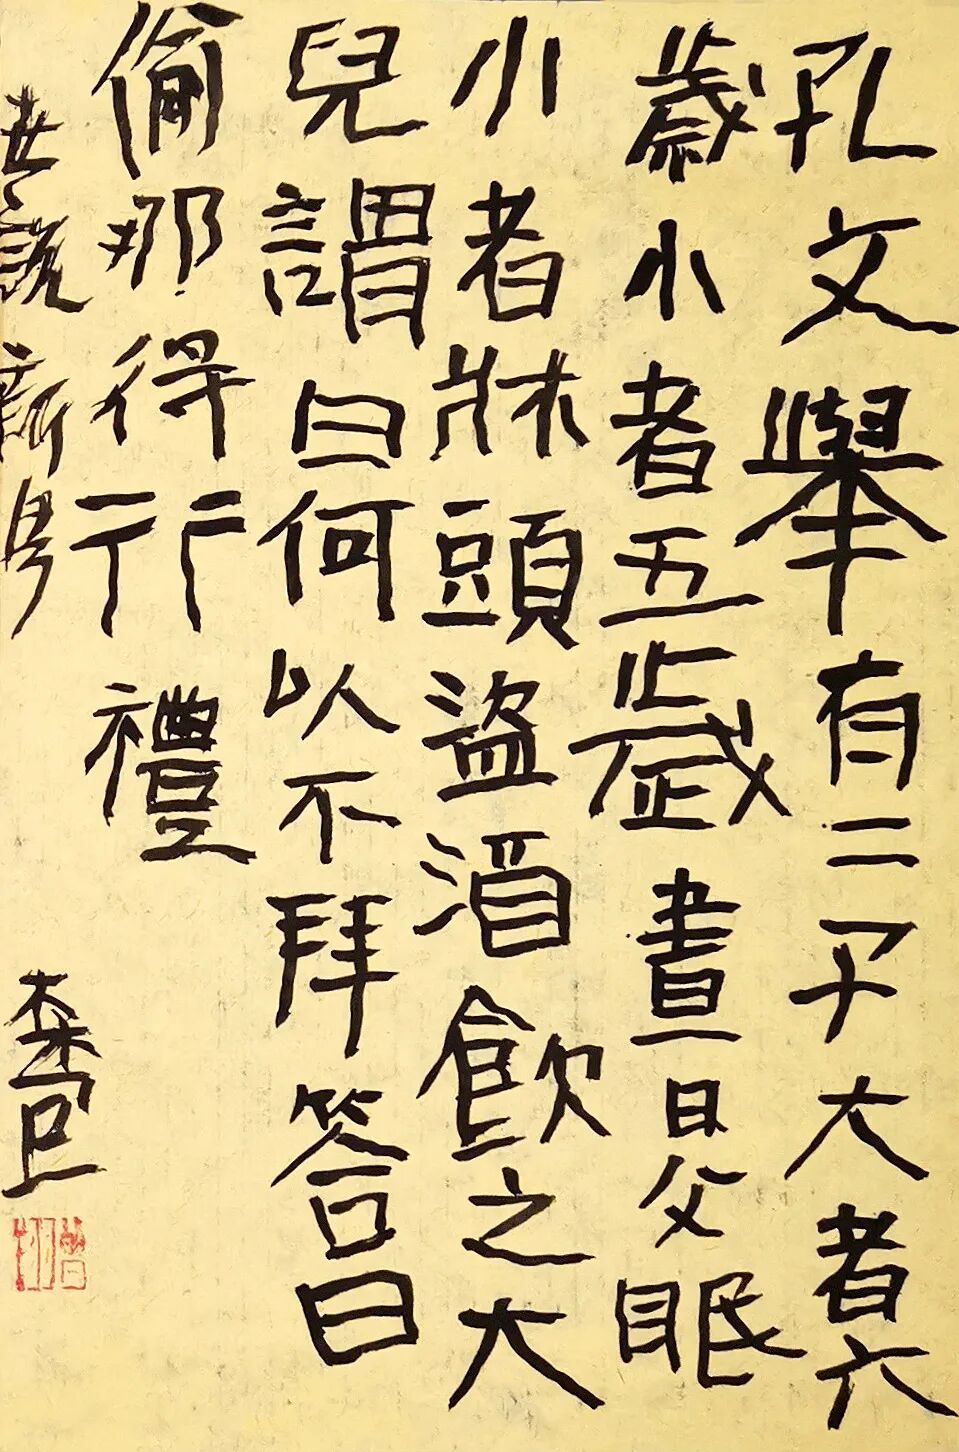 孔文舉有二子大者六
歲小者五歲晝日父眠
小者牀頭盜酒飲之大
兒謂曰何以不拜答曰
偷那得行禮
世說新
曾翔